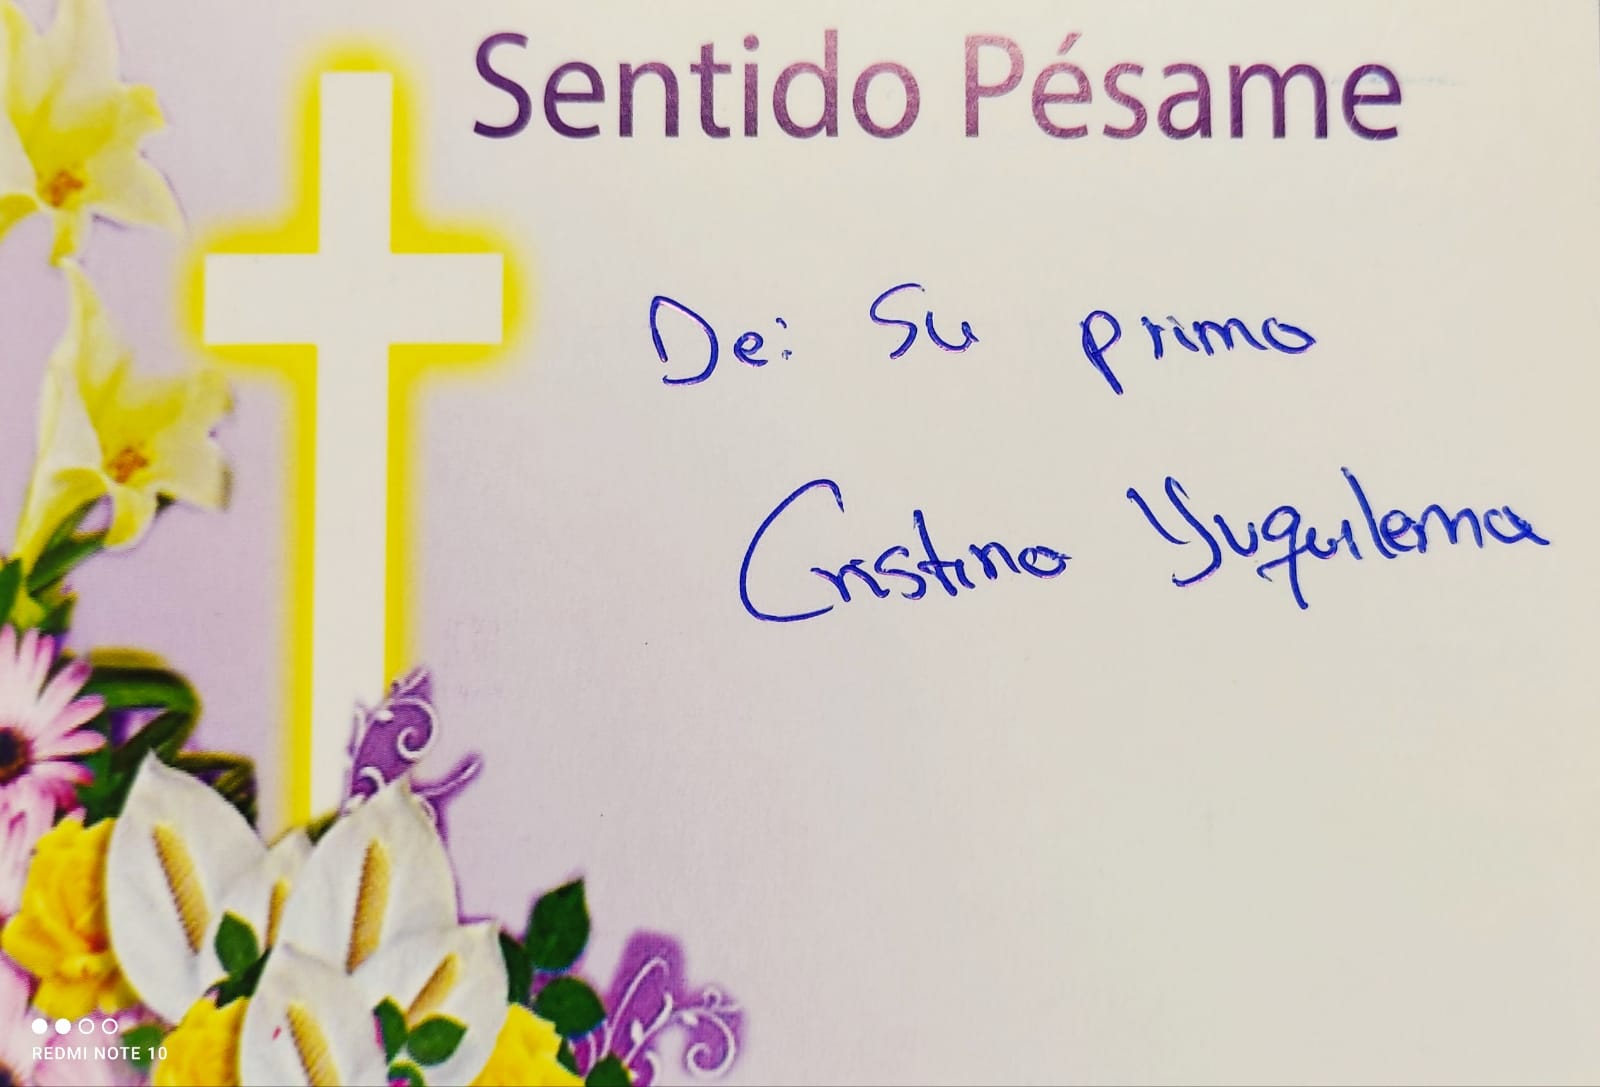 Sentido Pésame
De: Su primo
Cristino Yuquilema
REDMI NOTE 10